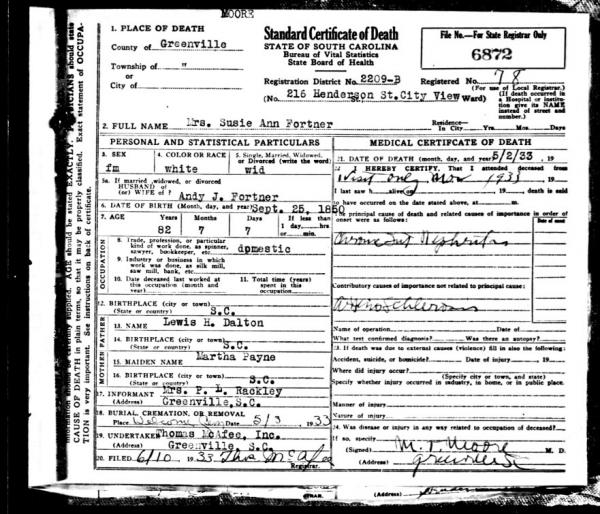 MOORE
1. PLACE OF DEATH
County of Greenville
Township of "
or
City of
Standard Certificate of Death
STATE OF SOUTH CAROLINA
Bureau of Vital Statistics
State Board of Health
File No.—For State Registrar Only
6872
Registration District No. 2209-B
Registered No. 78
(For use of Local Registrar.)
(No. 216 Henderson St. City View Ward)
(If death occurred in a Hospital or institution give its NAME instead of street and number.)
2. FULL NAME Mrs. Susie Ann Fortner
Residence— In City Yrs. Mos. Days
PERSONAL AND STATISTICAL PARTICULARS
3. SEX
fm
4. COLOR OR RACE
white
5. Single, Married, Widowed, or Divorced (write the word)
wid
5a. If married, widowed, or divorced
HUSBAND of
(or) WIFE of Andy J. Fortner
6. DATE OF BIRTH (Month, day, and year) Sept. 25, 1850
7. AGE Years Months Days If less than
82 7 7 1 day, hrs.
or min.
OCCUPATION
8. Trade, profession, or particular kind of work done, as spinner, sawyer, bookkeeper, etc. domestic
9. Industry or business in which work was done, as silk mill, saw mill, bank, etc.
10. Date deceased last worked at this occupation (month and year)
11. Total time (years) spent in this occupation
12. BIRTHPLACE (city or town)
(State or country) S.C.
FATHER
13. NAME Lewis H. Dalton
14. BIRTHPLACE (city or town)
(State or country) S.C.
MOTHER
15. MAIDEN NAME Martha Payne
16. BIRTHPLACE (city or town)
(State or country) S.C.
17. INFORMANT Mrs. P. L. Rackley
(Address) Greenville, S.C.
18. BURIAL, CREMATION, OR REMOVAL
Place Welcome Date 5/3 1933
19. UNDERTAKER Thomas McAfee, Inc.
(Address) Greenville, S.C.
20. FILED 6/10 1933 Thos McAfee
Registrar.
MEDICAL CERTIFCATE OF DEATH
21. DATE OF DEATH (month, day, and year) 5/2/33, 19
I HEREBY CERTIFY, That I attended deceased from
Visit only, Mar 1933, 19
I last saw h alive on 19 death is said
to have occurred on the date stated above, at m.
The principal cause of death and related causes of importance in order of onset were as follows:
Date of onset
Chronic Int Nephritis
Contributory causes of importance not related to principal cause:
Name of operation Date of
What test confirmed diagnosis? Was there an autopsy?
23. If death was due to external causes (violence) fill in also the following:
Accident, suicide, or homicide? Date of injury , 19
Where did injury occur?
(Specify city or town, county, and state)
Specify whether injury occurred in industry, in home, or in public place.
Manner of injury
Nature of injury
24. Was disease or injury in any way related to occupation of deceased?
If so, specify
(Signed) M. T. Moore M. D.
(Address) Greenville
CAUSE OF DEATH in plain terms, so that it may be properly classified. Exact statement of OCCUPATION is very important. See instructions on back of certificate.